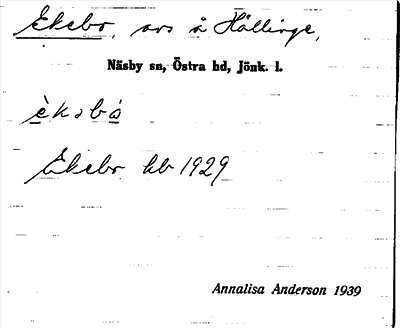 Ekebo, avs å Hällinge,
Näsby sn, Östra hd, Jönk. l.
èkɔbó
Ekebo hb 1929
Annalisa Anderson 1939